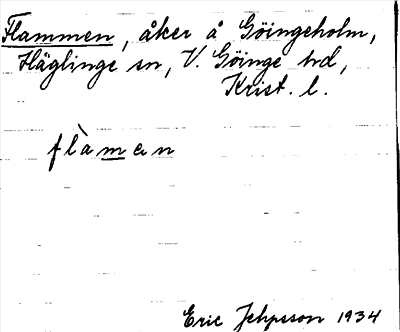 Flammen, åker å Göingeholm,
Häglinge sn, V. Göinge hd,
Krist. l.
flàmen
Eric Jepsson 1934